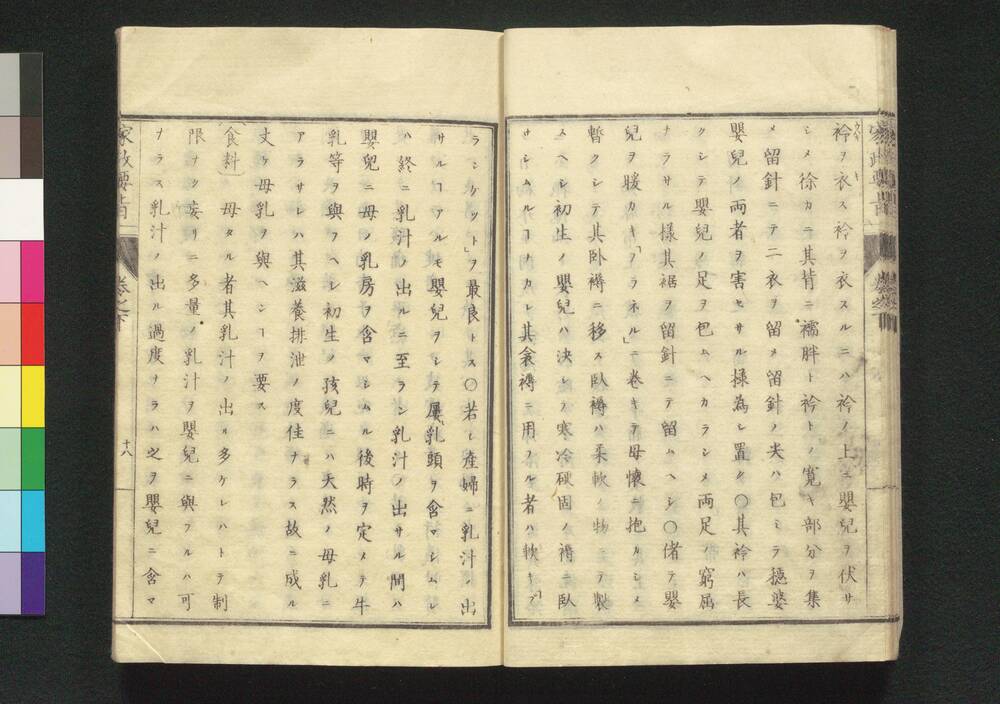 衿ヲ衣ス衿ヲ衣スルニハ衿ノ上ニ嬰兒ヲ伏サ
シメ徐カニ其背ニ襦胖ト衿トノ寛キ部分ヲ集
メ留針ニテ二衣ヲ留メ留針ノ尖ハ包ミテ穏婆
嬰兒ノ両者ヲ害セサル様為シ置ク〇其衿ハ長
クシテ嬰兒ノ足ヲ包ムヘカラシメ両足ノ窮屈
ナラサル様其裾ヲ留針ニテ留ムヘシ〇偖テ嬰
兒ヲ暖カキ「フラネル」ニ巻キテ母懐ニ抱カシメ
暫クシテ其卧褥ニ移ス臥褥ハ柔軟ノ物ニテ製
スヘシ初生ノ嬰兒ハ决シテ寒冷硬固ノ褥ニ臥
サシムルヿナカレ其衾褥ニ用フル者ハ軟キ「ブ
ランケット」ヲ最良トス〇若シ産婦ニ乳汁ノ出
サルヿアルモ嬰兒ヲシテ屢乳頭ヲ含マシムレ
ハ終ニ乳汁ノ出ルニ至ラン乳汁ノ出サル間ハ
嬰兒ニ母ノ乳房ヲ含マシムル後時ヲ定メテ牛
乳等ヲ與フヘシ初生ノ孩兒ニハ天然ノ母乳ニ
アラサレハ其滋養排泄ノ度佳ナラス故ニ成ル
丈ケ母乳ヲ與ヘンヿヲ要ス
食料 母タル者其乳汁ノ出ル多ケレハトテ制
限ナク妄リニ多量ノ乳汁ヲ嬰兒ニ與フルハ可
ナラス乳汁ノ出ル過度ナラハ之ヲ嬰兒ニ含マ
家政要旨 巻之下
十八